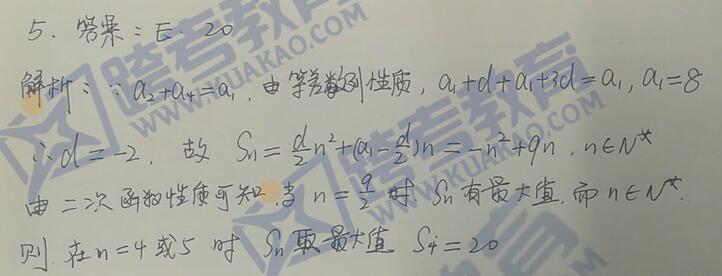 5. 答案：E. 20
解析：∵ a₂+a₄=a₁, 由等差数列性质, a₁+d+a₁+3d=a₁, a₁=8
∴ d=-2, 故 Sn=d/2 n²+(a₁-d/2)n=-n²+9n, n∈N*
由二次函数性质可知, 当 n=9/2 时 Sn有最大值, 而 n∈N*.
则, 在n=4或5 时 Sn取最大值 S4=20
跨考教育
KUAKAO.COM
跨考教育
KUAKAO.COM